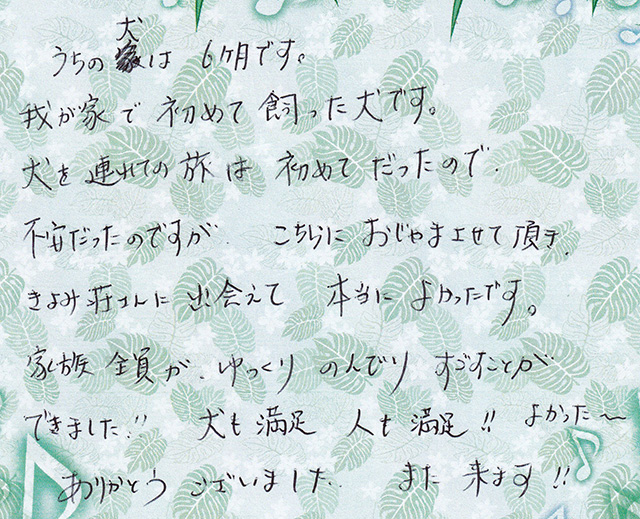 うちの犬は 6ヶ月です。
我が家で 初めて 飼った犬です。
犬を連れての旅は 初めてだったので、
不安だったのですが、 こちらに おじゃまさせて頂き、
きよみ荘さんに 出会えて 本当に よかったです。
家族全員が、ゆっくり のんびり すごすことが
できました!! 犬も満足 人も満足!! よかった〜
ありがとう ございました。 また来ます!!